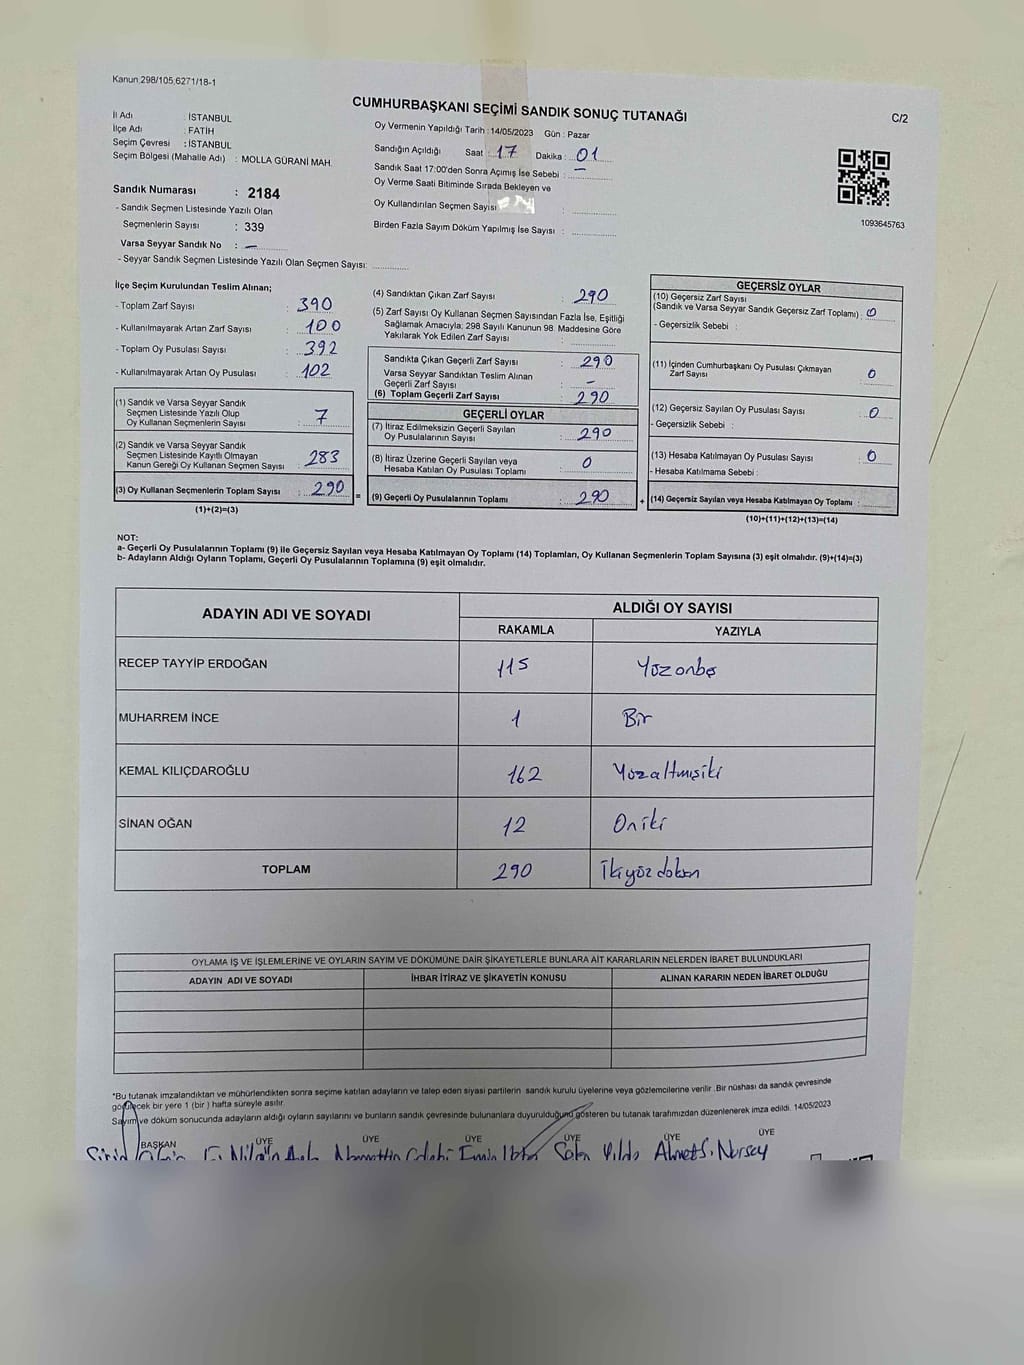 Kanun 298/105,6271/18-1
CUMHURBAŞKANI SEÇİMİ SANDIK SONUÇ TUTANAĞI
C/2
İl Adı : İSTANBUL
İlçe Adı : FATİH
Seçim Çevresi : İSTANBUL
Seçim Bölgesi (Mahalle Adı) : MOLLA GÜRANİ MAH.
Sandık Numarası : 2184
- Sandık Seçmen Listesinde Yazılı Olan
Seçmenlerin Sayısı : 339
Varsa Seyyar Sandık No : –
- Seyyar Sandık Seçmen Listesinde Yazılı Olan Seçmen Sayısı: ............
Oy Vermenin Yapıldığı Tarih : 14/05/2023 Gün : Pazar
Sandığın Açıldığı Saat : 17 Dakika : 01
Sandık Saat 17:00'den Sonra Açımış İse Sebebi : –
Oy Verme Saati Bitiminde Sırada Bekleyen ve
Oy Kullandırılan Seçmen Sayısı : ............
Birden Fazla Sayım Döküm Yapılmış İse Sayısı : ............
1093645763
İlçe Seçim Kurulundan Teslim Alınan;
- Toplam Zarf Sayısı : 390
- Kullanılmayarak Artan Zarf Sayısı : 100
- Toplam Oy Pusulası Sayısı : 392
- Kullanılmayarak Artan Oy Pusulası : 102
(1) Sandık ve Varsa Seyyar Sandık
Seçmen Listesinde Yazılı Olup
Oy Kullanan Seçmenlerin Sayısı : 7
(2) Sandık ve Varsa Seyyar Sandık
Seçmen Listesinde Kayıtlı Olmayan
Kanun Gereği Oy Kullanan Seçmen Sayısı : 283
(3) Oy Kullanan Seçmenlerin Toplam Sayısı : 290 =
(1)+(2)=(3)
(4) Sandıktan Çıkan Zarf Sayısı : 290
(5) Zarf Sayısı Oy Kullanan Seçmen Sayısından Fazla İse, Eşitliği
Sağlamak Amacıyla; 298 Sayılı Kanunun 98. Maddesine Göre
Yakılarak Yok Edilen Zarf Sayısı : ............
Sandıkta Çıkan Geçerli Zarf Sayısı : 290
Varsa Seyyar Sandıktan Teslim Alınan
Geçerli Zarf Sayısı : –
(6) Toplam Geçerli Zarf Sayısı : 290
GEÇERLİ OYLAR
(7) İtiraz Edilmeksizin Geçerli Sayılan
Oy Pusulalarının Sayısı : 290
(8) İtiraz Üzerine Geçerli Sayılan veya
Hesaba Katılan Oy Pusulası Toplamı : 0
(9) Geçerli Oy Pusulalarının Toplamı : 290 +
GEÇERSİZ OYLAR
(10) Geçersiz Zarf Sayısı
(Sandık ve Varsa Seyyar Sandık Geçersiz Zarf Toplamı) : 0
- Geçersizlik Sebebi :
(11) İçinden Cumhurbaşkanı Oy Pusulası Çıkmayan
Zarf Sayısı : 0
(12) Geçersiz Sayılan Oy Pusulası Sayısı : 0
- Geçersizlik Sebebi :
(13) Hesaba Katılmayan Oy Pusulası Sayısı : 0
- Hesaba Katılmama Sebebi :
(14) Geçersiz Sayılan veya Hesaba Katılmayan Oy Toplamı : ............
(10)+(11)+(12)+(13)=(14)
NOT:
a- Geçerli Oy Pusulalarının Toplamı (9) ile Geçersiz Sayılan veya Hesaba Katılmayan Oy Toplamı (14) Toplamları, Oy Kullanan Seçmenlerin Toplam Sayısına (3) eşit olmalıdır. (9)+(14)=(3)
b- Adayların Aldığı Oyların Toplamı, Geçerli Oy Pusulalarının Toplamına (9) eşit olmalıdır.
ADAYIN ADI VE SOYADI ALDIĞI OY SAYISI
RAKAMLA YAZIYLA
RECEP TAYYİP ERDOĞAN 115 Yüzonbeş
MUHARREM İNCE 1 Bir
KEMAL KILIÇDAROĞLU 162 Yüzaltmışiki
SİNAN OĞAN 12 Oniki
TOPLAM 290 İkiyüz doksan
OYLAMA İŞ VE İŞLEMLERİNE VE OYLARIN SAYIM VE DÖKÜMÜNE DAİR ŞİKAYETLERLE BUNLARA AİT KARARLARIN NELERDEN İBARET BULUNDUKLARI
ADAYIN ADI VE SOYADI İHBAR İTİRAZ VE ŞİKAYETİN KONUSU ALINAN KARARIN NEDEN İBARET OLDUĞU
*Bu tutanak imzalandıktan ve mühürlendikten sonra seçime katılan adayların ve talep eden siyasi partilerin sandık kurulu üyelerine veya gözlemcilerine verilir .Bir nüshası da sandık çevresinde
görülecek bir yere 1 (bir ) hafta süreyle asılır.
Sayım ve döküm sonucunda adayların aldığı oyların sayılarını ve bunların sandık çevresinde bulunanlara duyurulduğunu gösteren bu tutanak tarafımızdan düzenlenerek imza edildi. 14/05/2023
BAŞKAN ÜYE ÜYE ÜYE ÜYE ÜYE ÜYE